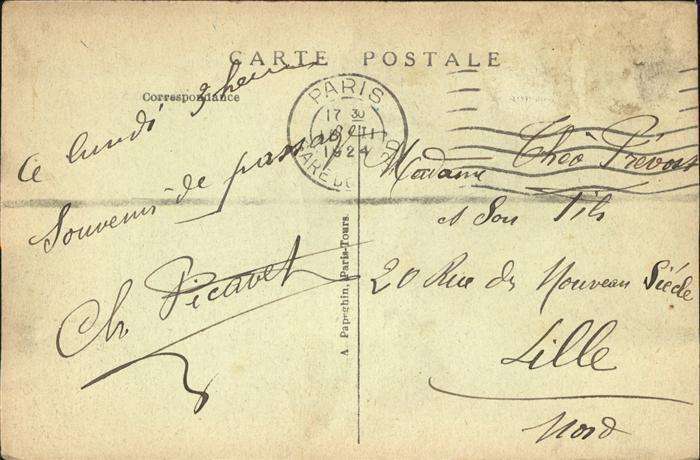 CARTE POSTALE
Correspondance
PARIS
17 30
1924
GARE DU NORD
Ce lundi 3 heures
Souvenir de passage
Ch Picavet
A. Papeghin, Paris-Tours.
Madame Théo Prévost
et Son fils
20 Rue du Nouveau Siécle
Lille
Nord